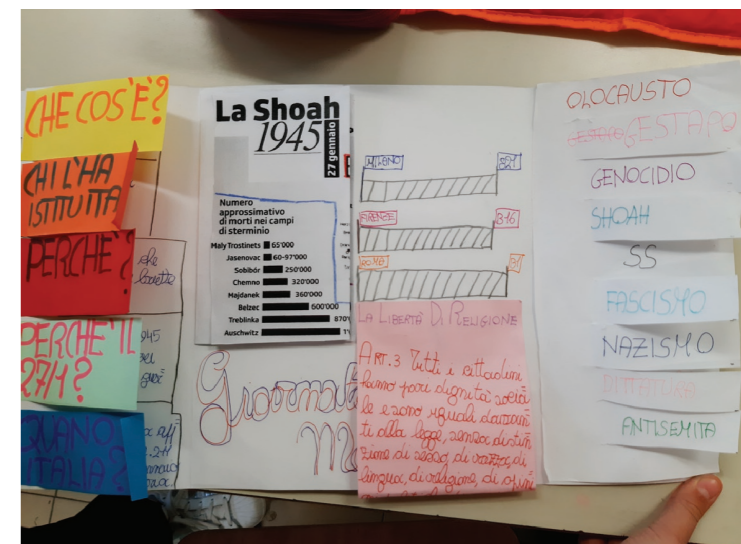 CHE COS'È?
CHI L'HA
ISTITUITA
PERCHÈ?
PERCHÈ IL
27/1?
QUANO
ITALIA?
che
945
La Shoah
1945
27 gennaio
Numero
approssimativo
di morti nei campi
di sterminio
Maly Trostinets 65'000
Jasenovac 60-97'000
Sobibór 250'000
Chemno 320'000
Majdanek 360'000
Belzec 600'000
Treblinka 870'
Auschwitz 1'1
Giornata
MILANO
FIRENZE 316
ROMA
LA LIBERTÀ DI RELIGIONE
ART. 3 Tutti i cittadini
hanno pari dignità socia
le e sono uguali davan
ti alla legge, senza distin
zione di sesso, di razza, di
lingua, di religione, di opini
OLOCAUSTO
GESTAPO GESTAPO
GENOCIDIO
SHOAH
SS
FASCISMO
NAZISMO
DITTATURA
ANTISEMITA